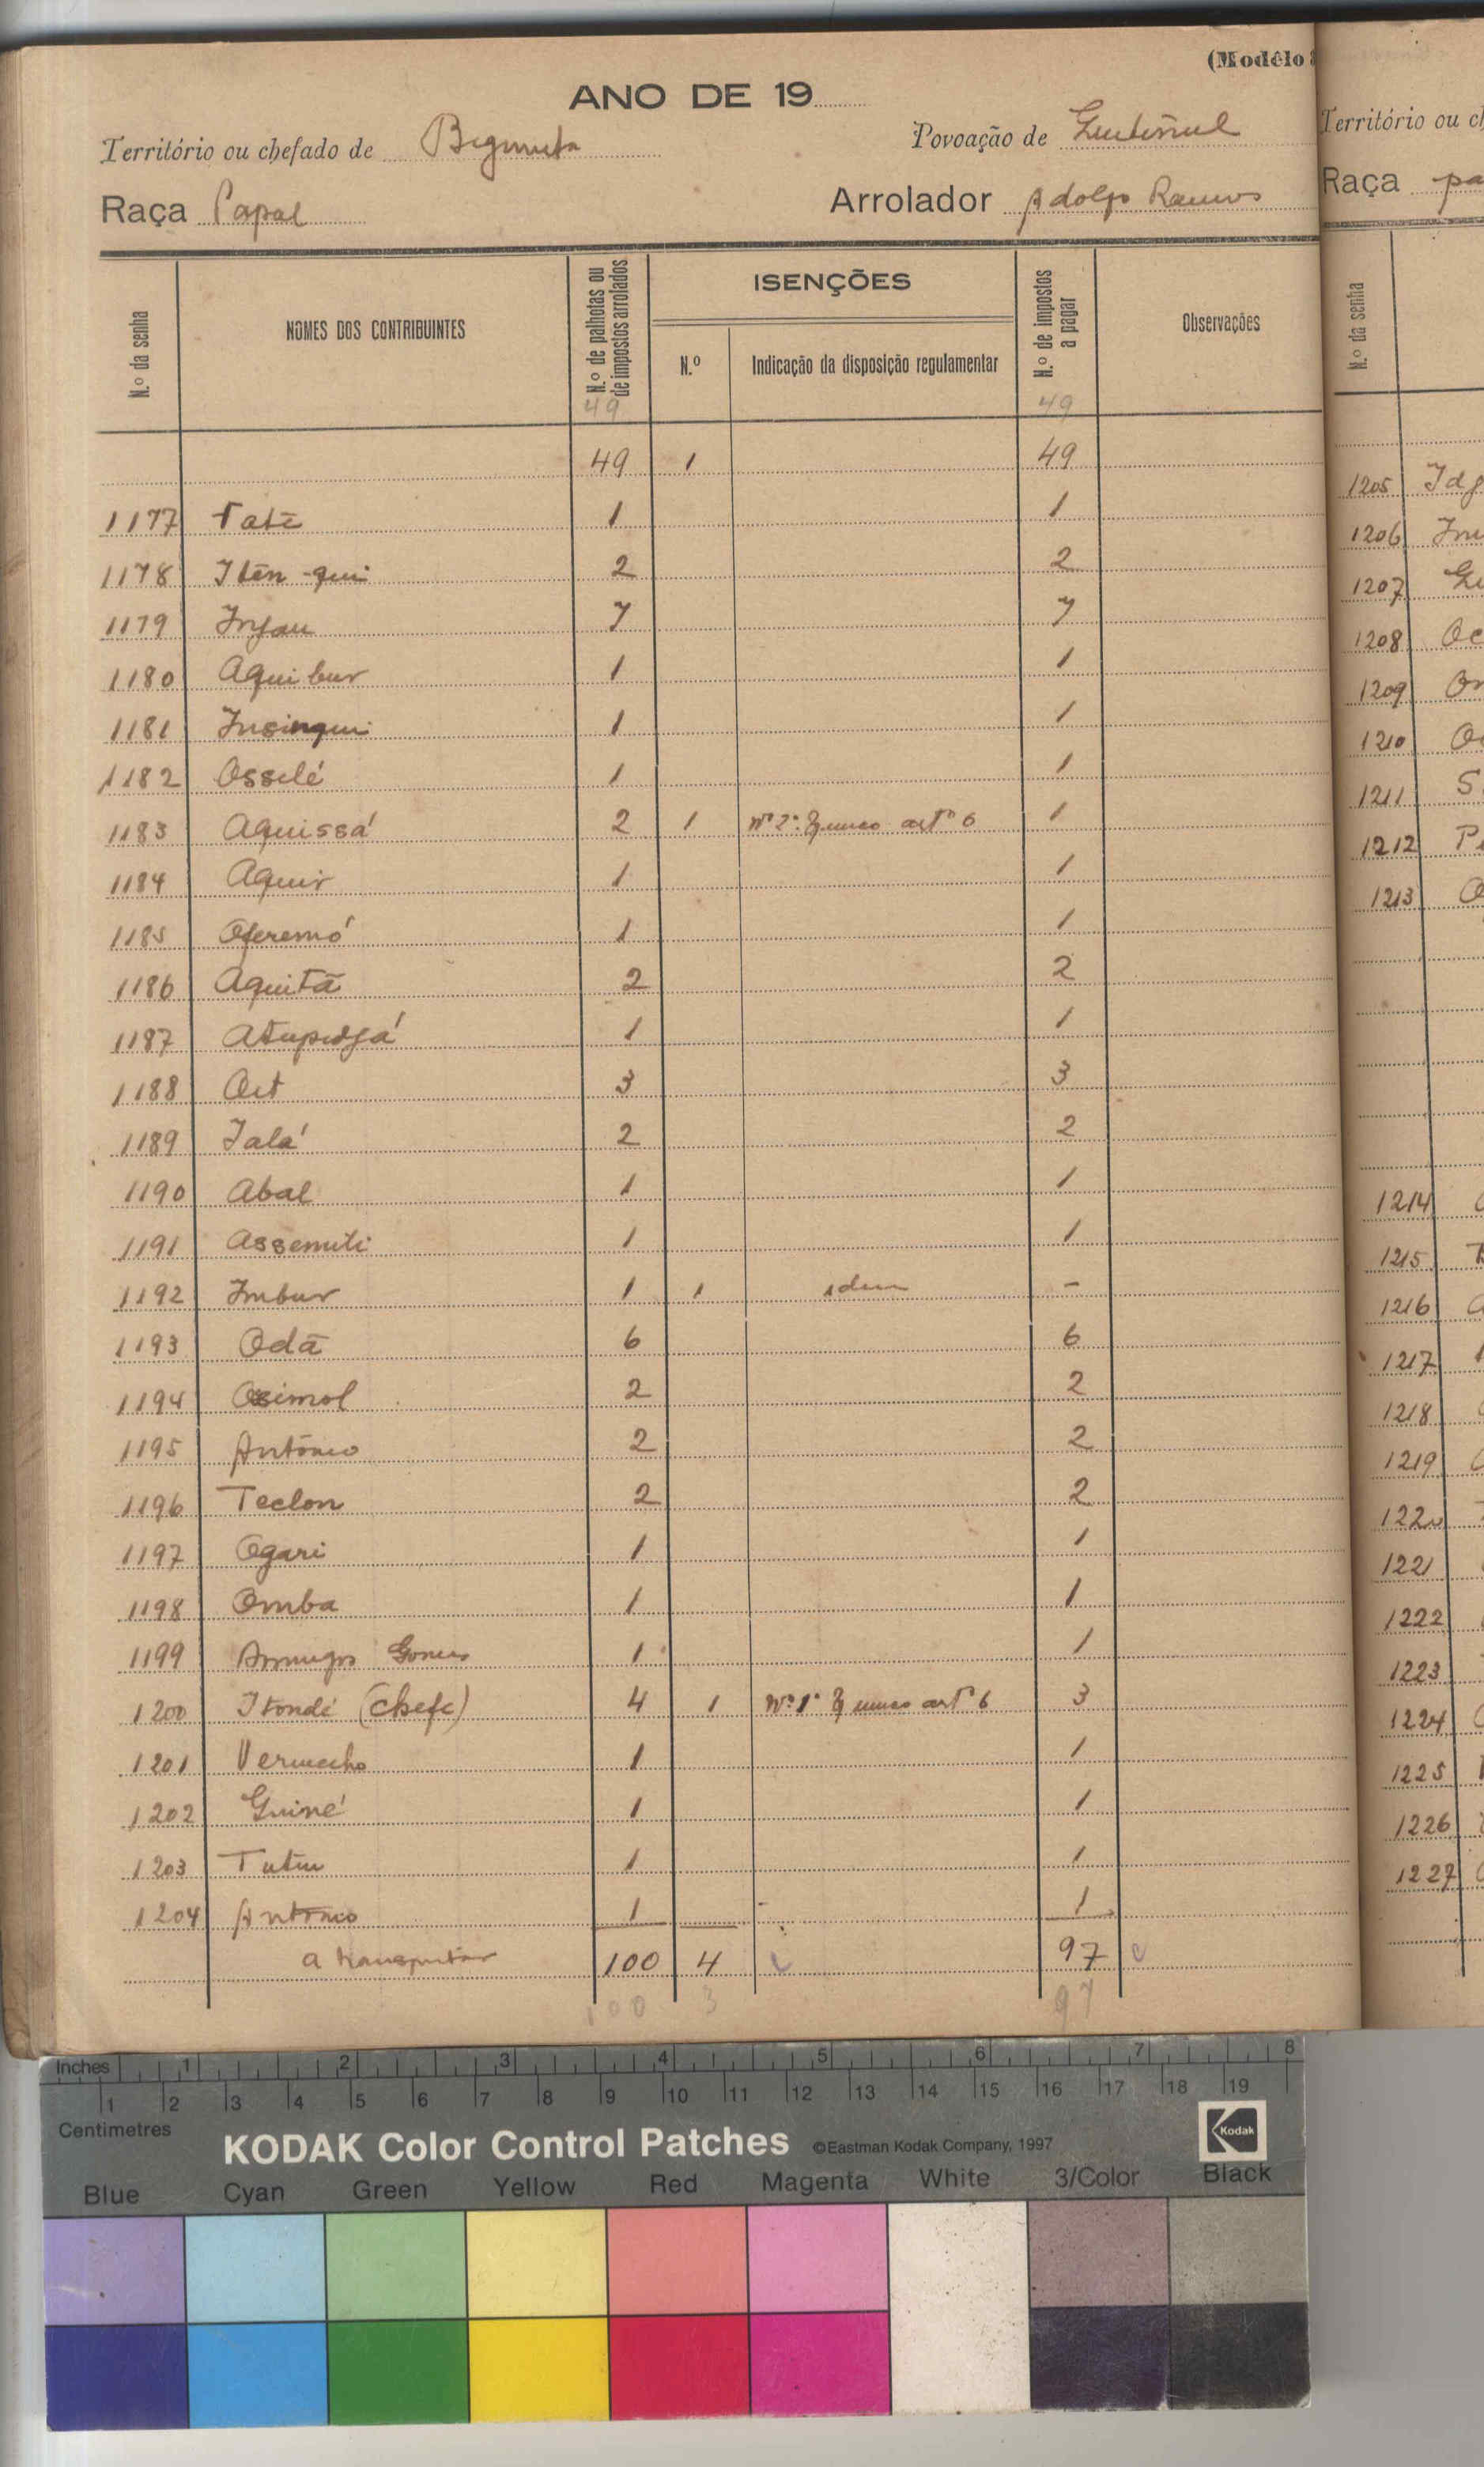 (Modêlo
ANO DE 19
Território ou chefado de Bigimita Povoação de
Raça Papal Arrolador Adolfo Ramos
N.º da senha NOMES DOS CONTRIBUINTES N.º de palhotas ou de impostos arrolados ISENÇÕES N.º de impostos a pagar Observações
N.º Indicação da disposição regulamentar
49 49
49 1 49
1177 Tatê 1 1
1178 Itên-qui 2 2
1179 Injau 7 7
1180 Aquibur 1 1
1181 Insinqui 1 1
1182 Ossilé 1 1
1183 Aquissá 2 1 Nº 2º § unico artº 6 1
1184 Aquir 1 1
1185 Oferemó 1 1
1186 Aquitã 2 2
1187 1 1
1188 Oct 3 3
1189 Ialá 2 2
1190 Abal 1 1
1191 Assemiti 1 1
1192 Imbur 1 1 idem -
1193 Odã 6 6
1194 Osimol 2 2
1195 António 2 2
1196 Teclon 2 2
1197 Ogari 1 1
1198 Omba 1 1
1199 Gomes 1 1
1200 Itondé (chefe) 4 1 Nº 1º § unico artº 6 3
1201 Vermecho 1 1
1202 Guiné 1 1
1203 Tutiu 1 1
1204 António 1 1
a transportar 100 4 97
100 3 97
Território ou ch
Raça pa
N.º da senha
1205 Idj
1206
1207
1208 Oc
1209
1210
1211 S
1212 P
1213 O
1214
1215
1216
1217
1218
1219
1220
1221
1222
1223
1224
1225
1226
1227
Inches 1 2 3 4 5 6 7 8
1 2 3 4 5 6 7 8 9 10 11 12 13 14 15 16 17 18 19
Centimetres
KODAK Color Control Patches ©Eastman Kodak Company, 1997 Kodak
Blue Cyan Green Yellow Red Magenta White 3/Color Black